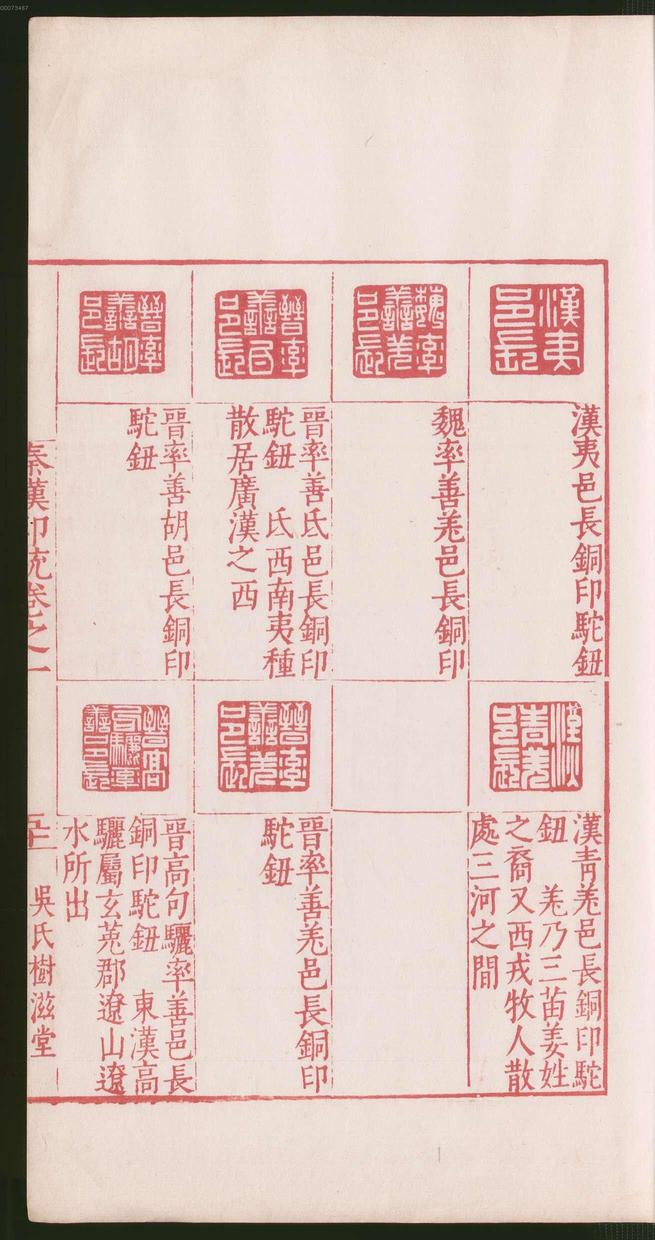 00073487
漢夷邑長
漢夷邑長銅印駝鈕
魏率善羌邑長
魏率善羌邑長銅印
晉率善氐邑長
晉率善氐邑長銅印
駝鈕　氐西南夷種
散居廣漢之西
晉率善胡邑長
晉率善胡邑長銅印
駝鈕
漢青羌邑長
漢青羌邑長銅印駝
鈕　羌乃三苗姜姓
之裔又西戎牧人散
處三河之間
晉率善羌邑長
晉率善羌邑長銅印
駝鈕
晉高句驪率善邑長
晉高句驪率善邑長
銅印駝鈕　東漢高
驪屬玄菟郡遼山遼
水所出
秦漢印統卷之一
吳氏樹滋堂